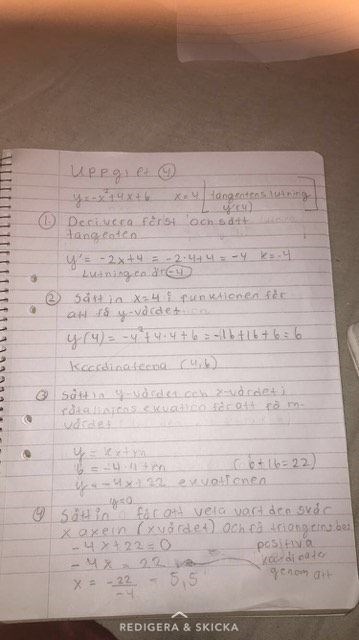 Uppgift 4
y=-x²+4x+6 x=4 [tangentens lutning
y'(4)]
1. Derivera först och sätt
tangenten
y' = -2x+4 = -2·4+4 = -4 k=-4
Lutningen är -4
2 Sätt in x=4 i funktionen för
att få y-värdet
y(4) = -4²+4·4+6 = -16+16+6 = 6
Koordinaterna (4,6)
3 Sätt in y-värdet och x-värdet i
räta linjens ekvation för att få m-
värdet
y = kx+m
6 = -4·4+m (6+16=22)
y = -4x+22 ekvationen
y=0
4 Sätt in för att veta vart den skär
x axeln (xvärdet) och få triangelns bas
-4x+22=0 positiva
-4x = 22 koordinater
x = -22/-4 = 5,5 genom att
REDIGERA & SKICKA